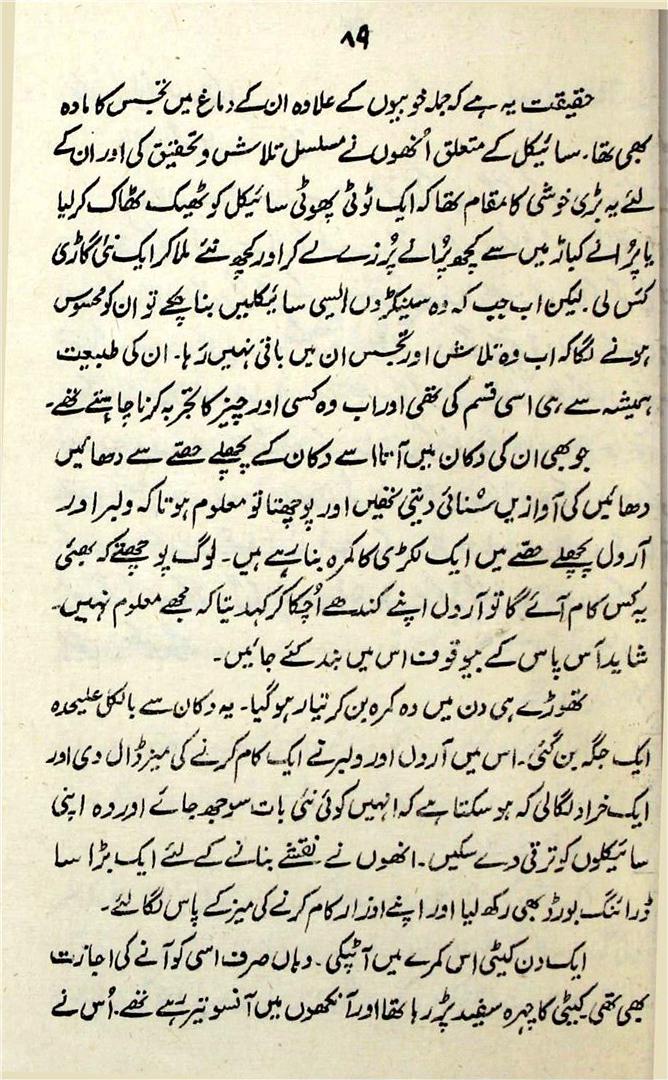 ۸۹
حقیقت یہ ہے کہ جملہ خوبیوں کے علاوہ ان کے دماغ میں تجسس کا مادہ
بھی تھا۔ سائیکل کے متعلق اُنھوں نے مسلسل تلاش و تحقیق کی اور ان کے
لئے یہ بڑی خوشی کا مقام تھا کہ ایک ٹوٹی پھوٹی سائیکل کو ٹھیک ٹھاک کر لیا
یا پُرانے کباڑ میں سے کچھ پُرانے پُرزے لے کر اور کچھ نئے ملا کر ایک نئی گاڑی
کَس لی۔ لیکن اب جب کہ وہ سینکڑوں ایسی سائیکلیں بنا چکے تو ان کو محسوس
ہونے لگا کہ اب وہ تلاش اور تجسس ان میں باقی نہیں رہا۔ ان کی طبیعت
ہمیشہ سے ہی اسی قسم کی تھی اور اب وہ کسی اور چیز کا تجربہ کرنا چاہتے تھے۔
جو بھی ان کی دکان میں آتا اسے دکان کے پچھلے حصے سے دھائیں
دھائیں کی آوازیں سُنائی دیتی تھیں اور پوچھتا تو معلوم ہوتا کہ ولبر اور
آرول پچھلے حصے میں ایک لکڑی کا کمرہ بنا رہے ہیں۔ لوگ پوچھتے کہ بھئی
یہ کس کام آئے گا تو آرول اپنے کندھے اُچکا کر کہہ دیتا کہ مجھے معلوم نہیں۔
شاید آس پاس کے بیوقوف اس میں بند کئے جائیں۔
تھوڑے ہی دن میں وہ کمرہ بن کر تیار ہو گیا۔ یہ دکان سے بالکل علیحدہ
ایک جگہ بن گئی۔ اس میں آرول اور ولبر نے ایک کام کرنے کی میز ڈال دی اور
ایک خراد لگا لی کہ ہو سکتا ہے کہ انہیں کوئی نئی بات سوجھ جائے اور وہ اپنی
سائیکلوں کو ترقی دے سکیں۔ انھوں نے نقشے بنانے کے لئے ایک بڑا سا
ڈرائنگ بورڈ بھی رکھ لیا اور اپنے اوزار کام کرنے کی میز کے پاس لگا لئے۔
ایک دن کیٹی اس کمرے میں آ ٹپکی۔ وہاں صرف اسی کو آنے کی اجازت
بھی تھی۔ کیٹی کا چہرہ سفید پڑ رہا تھا اور آنکھوں میں آنسو تیر رہے تھے۔ اُس نے